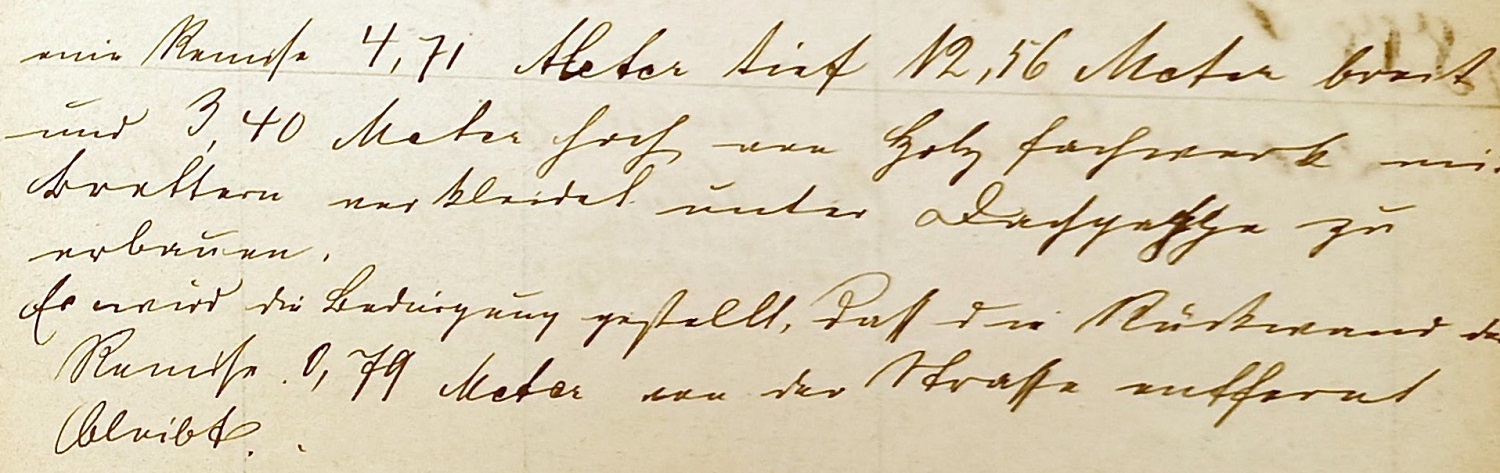 eine Remise 4,71 Meter tief 12,56 Meter breit
und 3,40 Meter hoch von Holzfachwerk mit
Brettern verkleidet unter Dachpappe zu
erbauen.
Es wird die Bedingung gestellt, daß die Rückwand der
Remise 0,79 Meter von der Straße entfernt
bleibt.